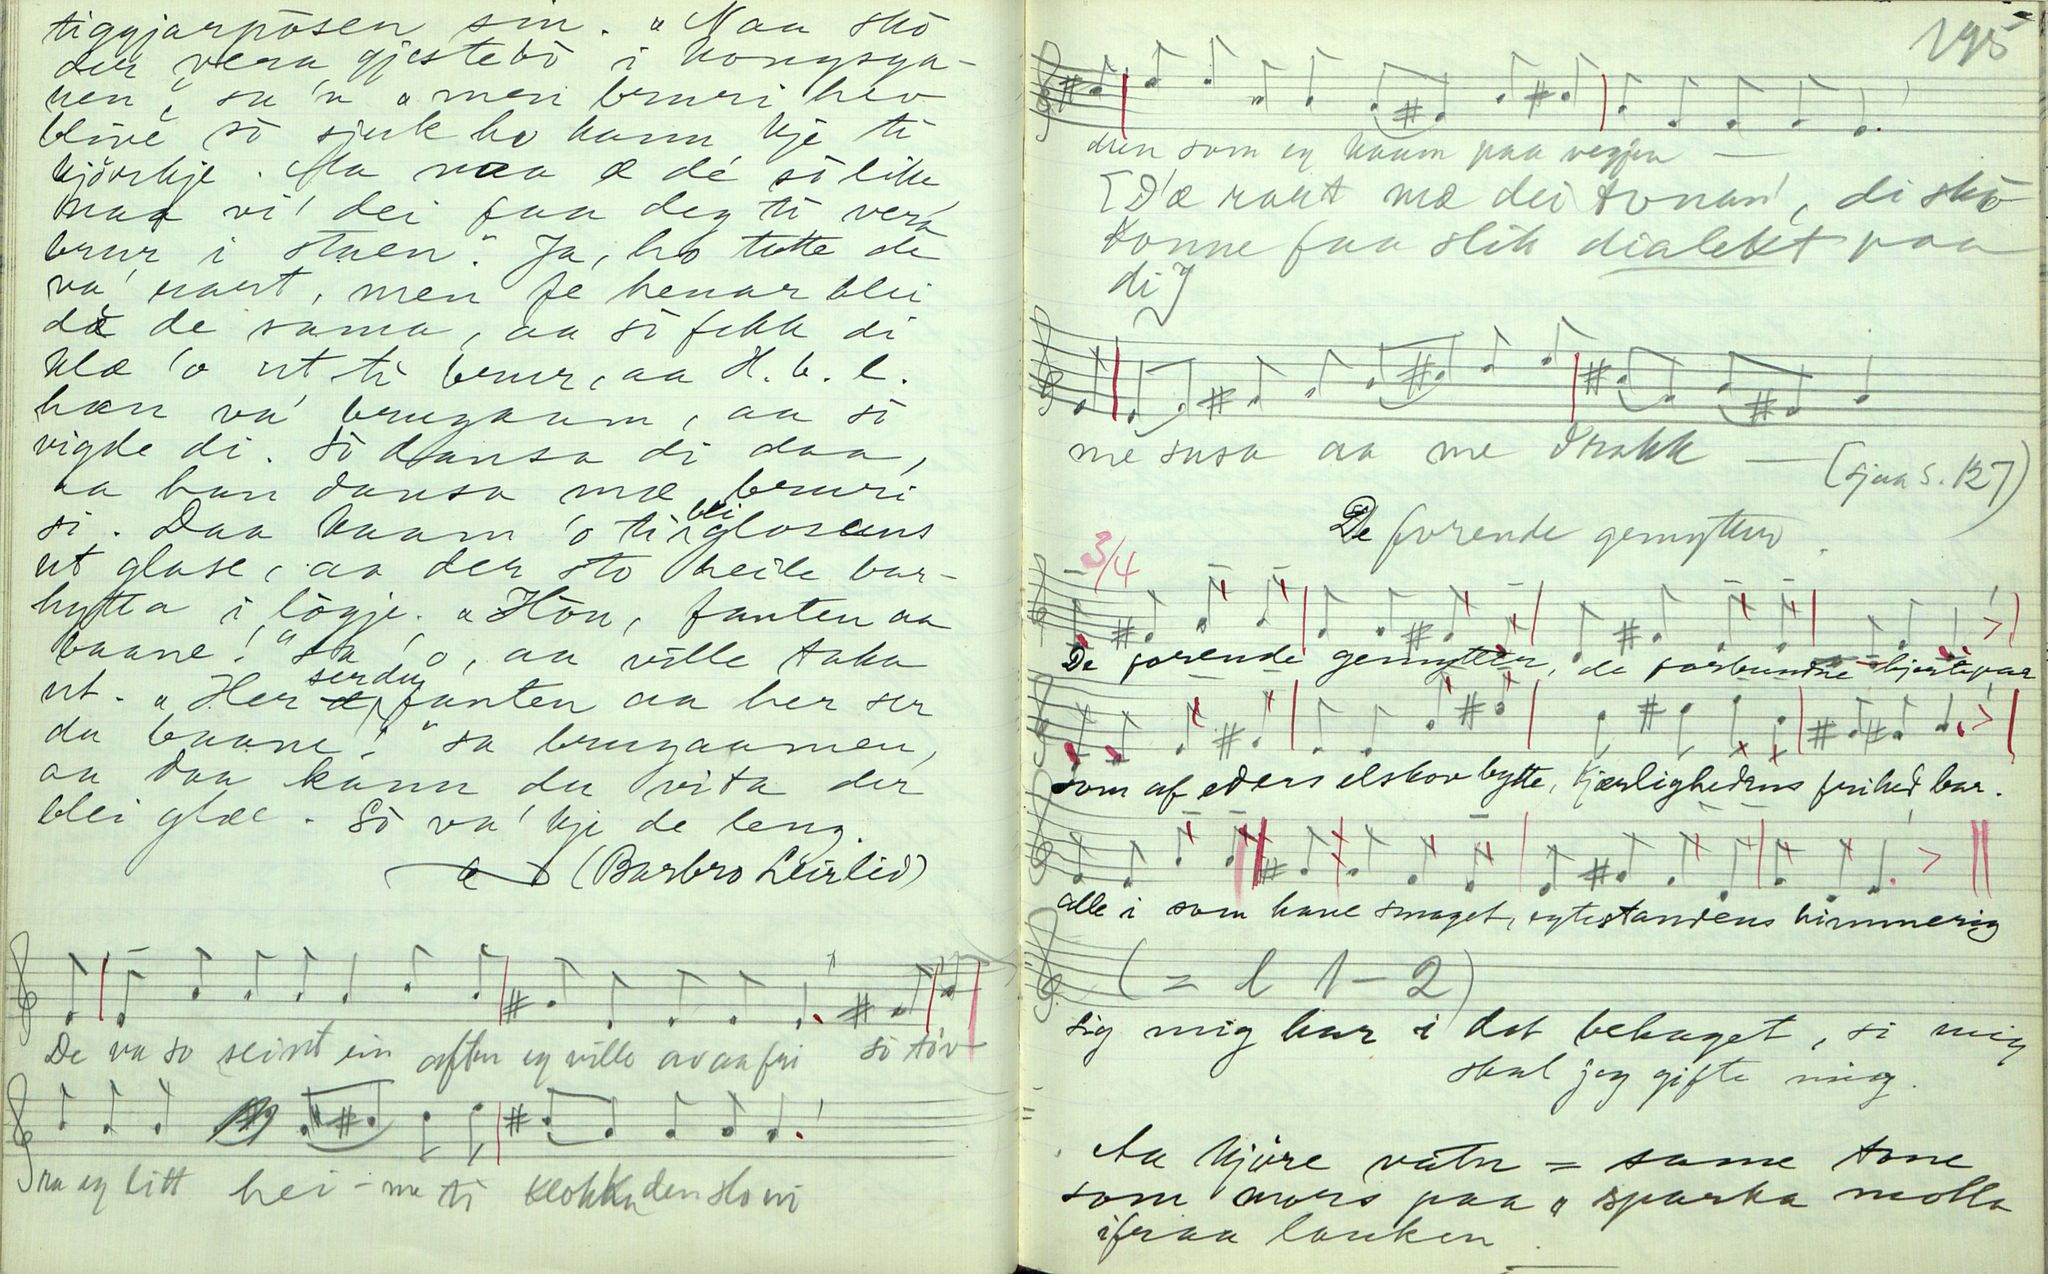 tiggjarpösen sin. "Naa skö
der vera gjestebö i kongsga-
nen", sa 'n "men bruri hev
blive sö sjuk ho kann kje ti
kjörkje. Aa naa æ dé sö like
naa vi' dei faa deg ti vera
brur i staen." Ja, ho totte de
va' rart, men fe henar blei
dæ de sama, aa sö fekk di
klæ 'o ut ti brur, aa H. b. l.
han va' brugaam, aa sö
vigde di. Sö dansa di daa,
aa han dansa mæ bruri
si. Daa kaam 'o ti bli glosans
ut glase, aa der sto heile bar-
hytta i lögje. "Hön, fanten aa
baane!" sa 'o, aa ville taka
ut. "Her ser du fanten aa her ser
du baane!" sa brugaamen,
aa daa kann du vita der
blei glæe. Sö va' kje de leng.
(Barbro Leirlid)
De va so seint ein aften eg ville av aa fri sö töv
ra eg litt hei-me ti klokka den slo ni
195
dien som eg kaam paa vegjen —
[D'æ rart mæ dei tonan', di skö
konne faa slik dialekt paa
di]
me susa aa me drakk — (sjaa s. 127)
De forende gemytter.
3/4
De forende gemytter, de forbundne hjertepar
som af eders elskov bytte, kjærlighedens frihed bar.
alle i som have smaget, egtestandens himmerig
(= l 1 – 2)
sig mig har i det behaget, si mig
skal jeg gifte mig.
Aa kjöre vatn = same tone
som mors paa "sparka molla
ifraa lanken